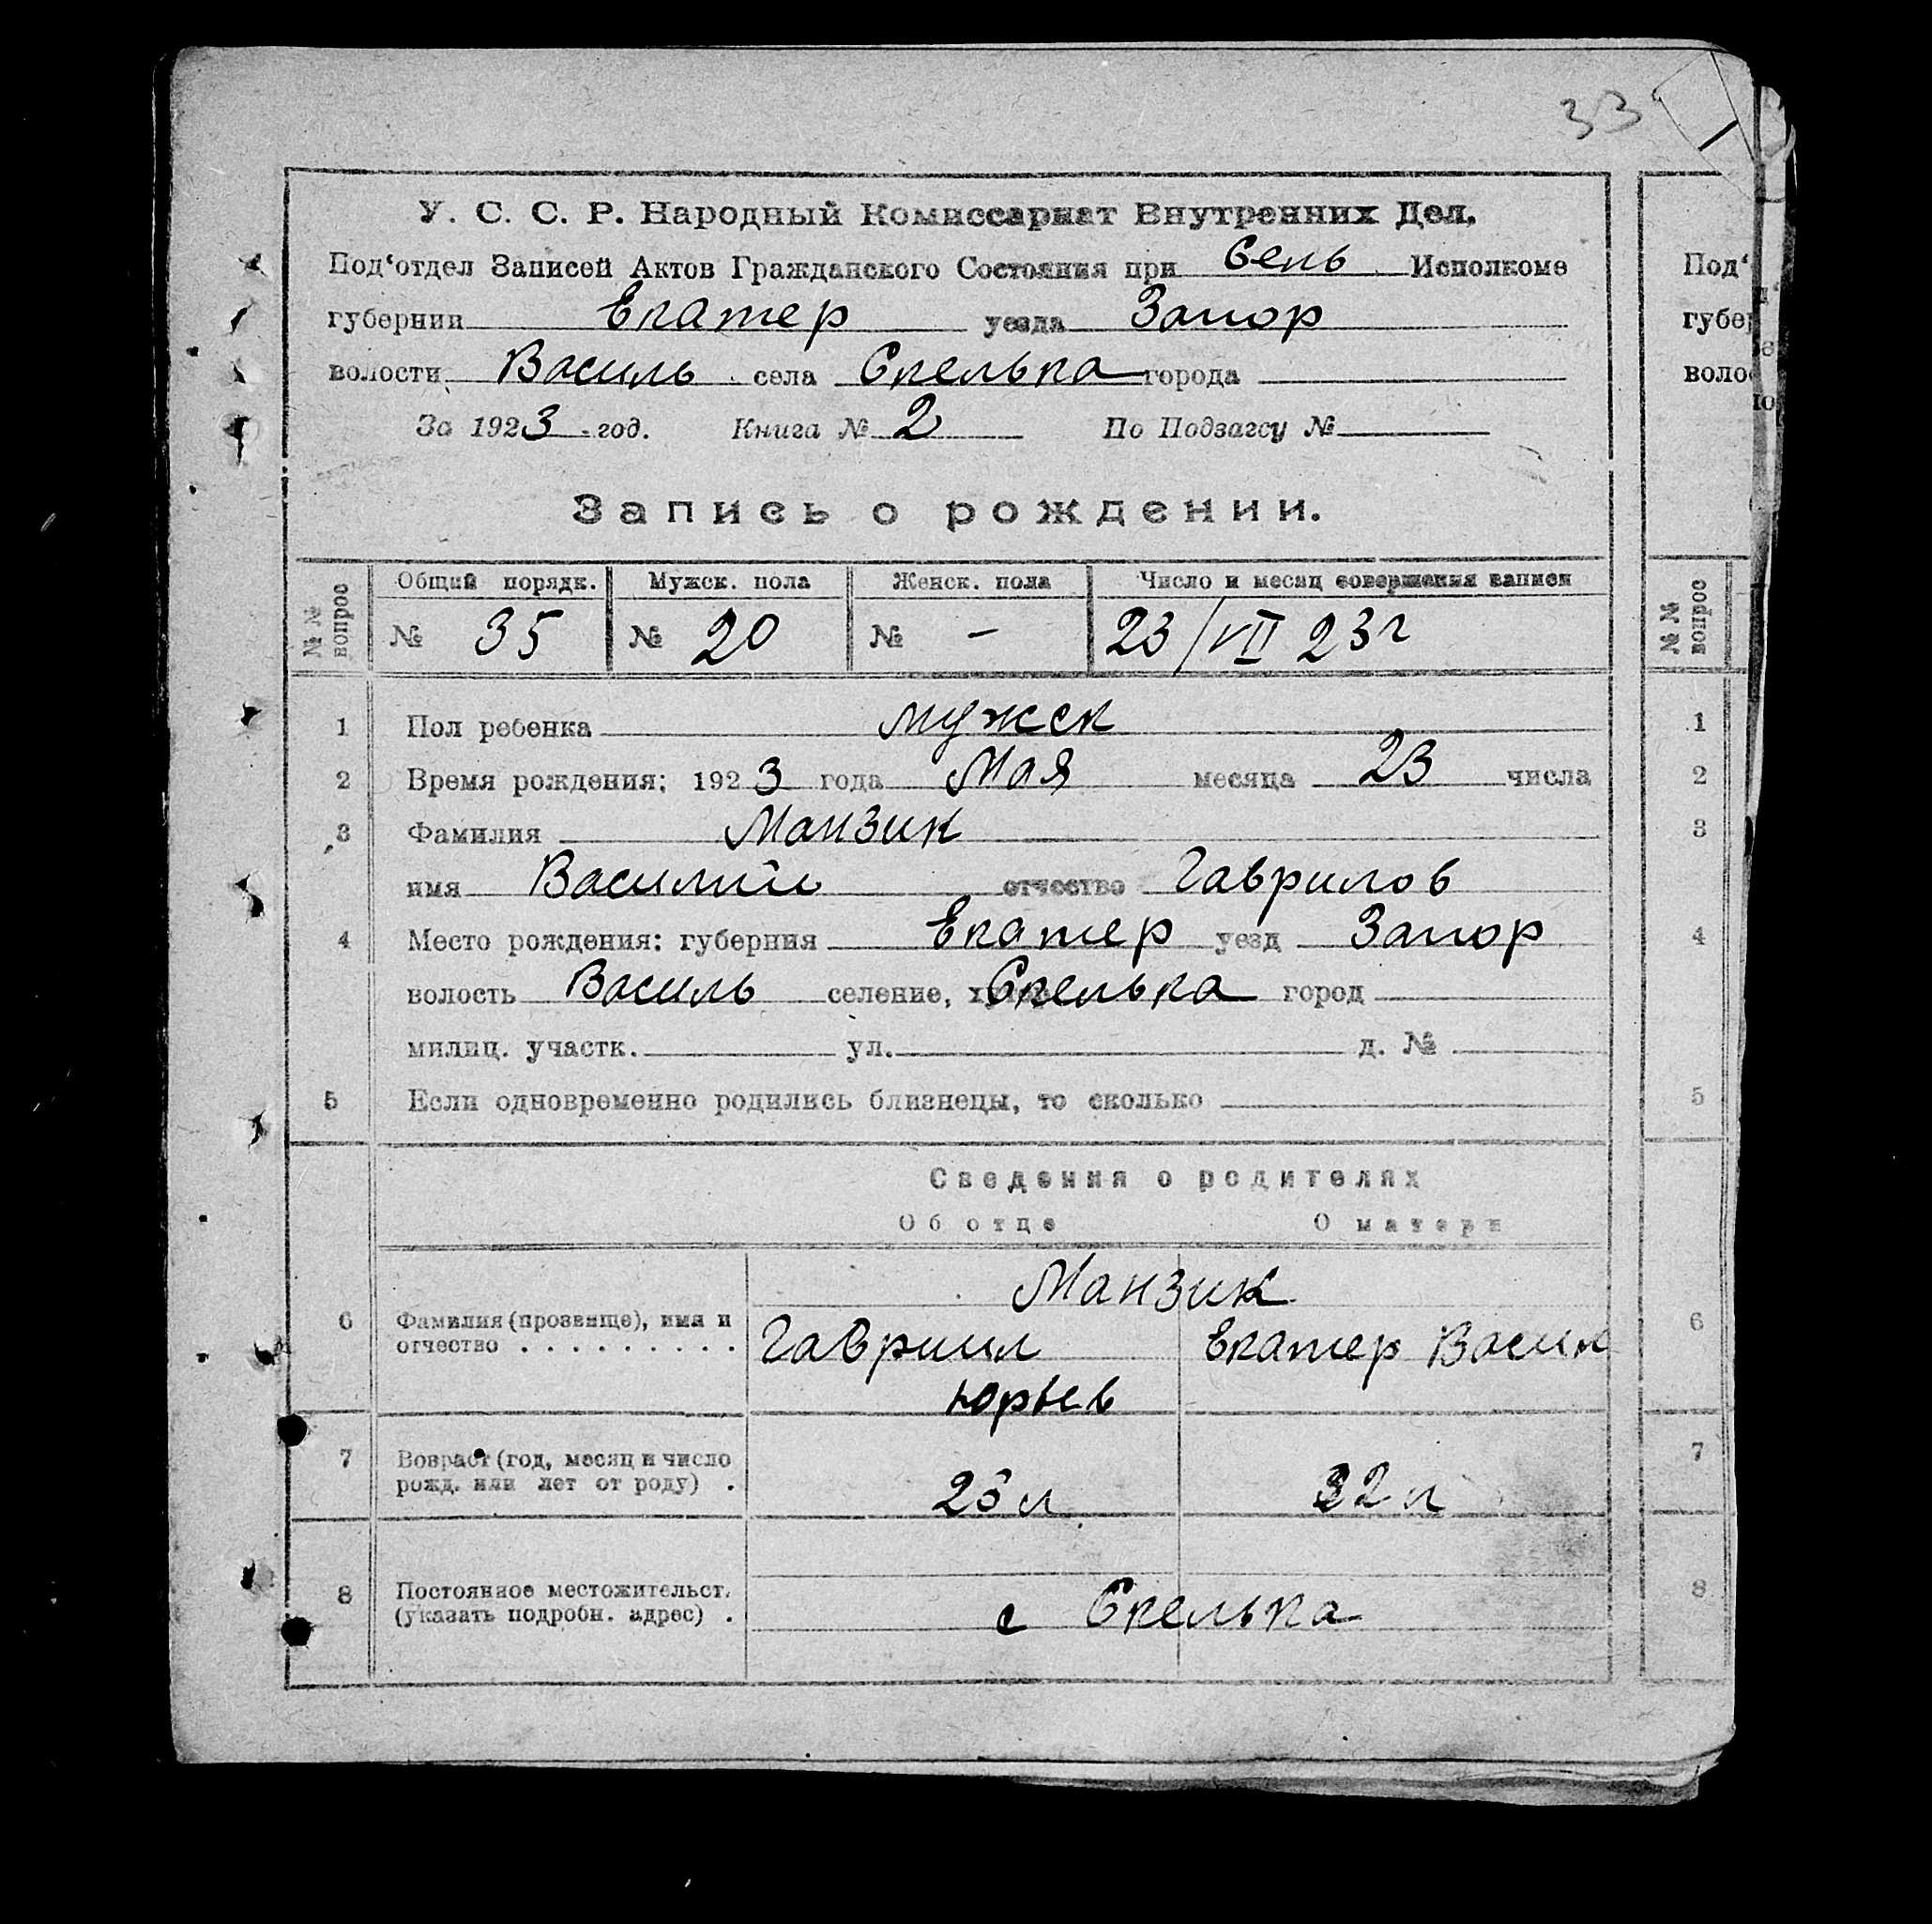 33
У. С. С. Р. Народный Комиссариат Внутренних Дел.
Под‘отдел Записей Актов Гражданского Состояния при Сель Исполкоме
губернии Екатер уезда Запор
волости Василь села Скелька города
За 1923 год. Книга № 2 По Подзагсу №
Запись о рождении.
№ № вопрос Общий порядк. Мужск. пола Женск. пола Число и месяц совершения записи
№ 35 № 20 № - 23/VII 23г
1 Пол ребенка мужск
2 Время рождения: 1923 года Мая месяца 23 числа
3 Фамилия Манзик
имя Василий отчество Гаврилов
4 Место рождения: губерния Екатер уезд Запор
волость Василь селение, Скелька город
милиц. участк. ул. д. №
5 Если одновременно родились близнецы, то сколько
Сведения о родителях
Об отце О матери
Манзик
6 Фамилия (прозвище), имя и
отчество . . . . . . . . . . Гавриил Екатер Васил
Юрьев
7 Возраст (год, месяц и число
рожд. или лет от роду) . л 32 л
8 Постоянное местожительст.
(указать подробн. адрес) . с Скелька
Под‘
губер
воло
№ № вопрос
1
2
3
4
5
6
7
8